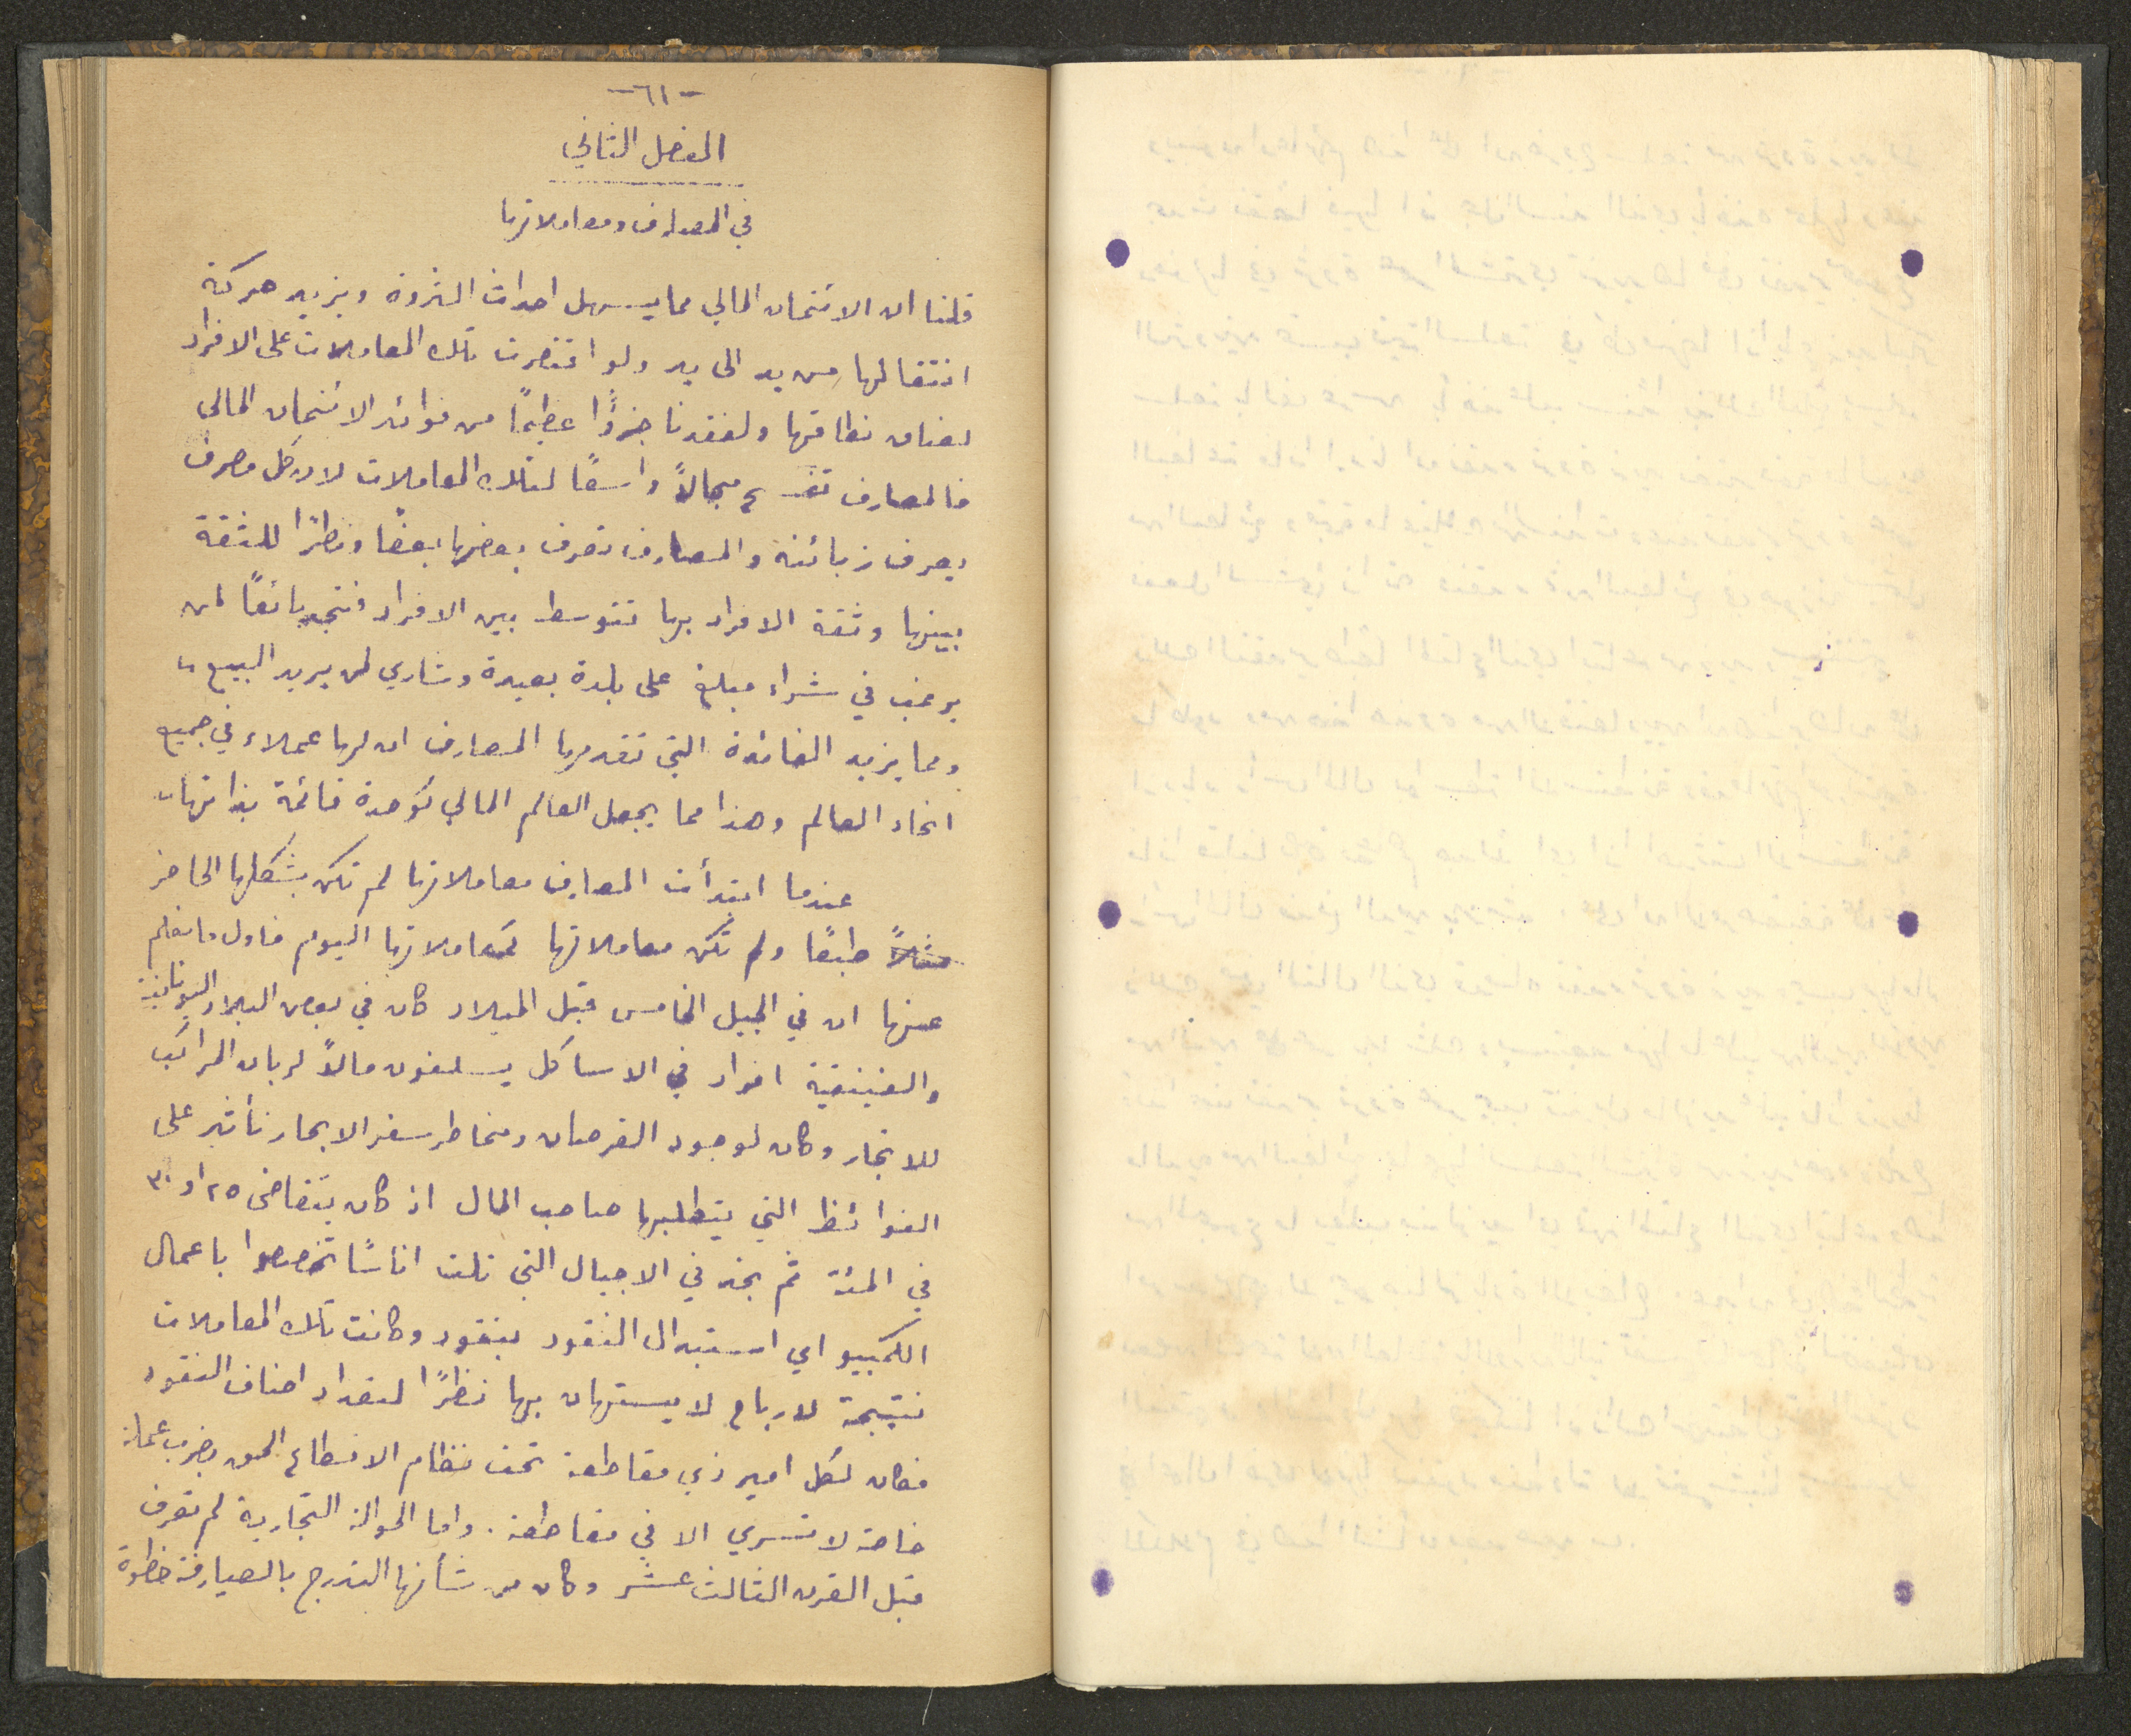 -٦١-
الفصل الثاني
في المصارف ومعاملاتها
قلنا ان الائتمان المالي مما يسهل احداث الثروة ويزيد حركة
انتقالها من يد الى يد ولو اقتصرت تلك المعاملات على الافراد
لضاق نطاقها ولفقدنا جزءًا عظيمًا من فوائد الائتمان المالي
فالمصارف تفسح مجالاً واسعًا لتلك المعاملات لان كل مصرف
يعرف زبائنه والمصارف تعرف بعضها بعضًا ونظرًا للثقة
بينها وثقة الافراد بها تتوسط بين الافراد فتجد بائعًا لمن
يرغب في شراء مبلغ على بلدة بعيدة وشاري لمن يريد البيع
ومما يزيد الفائدة التي تقدمها المصارف ان لها عملاء في جميع
انحاء العالم وهذا مما يجعل العالم المالي كوحدة قائمة بذاتها
عندما ابتدأت المصارف معاملاتها لم تكن بشكلها الحاضر
مثلاً طبعًا ولم تكن معاملاتها كمعاملاتها اليوم فاول ما نعلم
عنها ان في الجيل الخامس قبل الميلاد كان في بعض البلاد اليونانية
والفينيقية افراد في الاساكل يسلفون مالاً لربان المراكب
للاتجار وكان لوجود القرصان ومخاطر سفر الابحار تأثير على
الفوائظ التي يتطلبها صاحب المال اذ كان يتقاضى ٢٥ او ٣٠
في المئة ثم نجد في الاجيال التي تلت اناسًا تخصصوا باعمال
الكمبيو اي استبدال النقود بنقود وكانت تلك المعاملات
نتيجة لارباح لا يستهان بها نظرًا لتعداد اصناف النقود
فكان لكل امير ذي مقاطعة تحت نظام الاقطاع الحق بضرب عملة
خاصة لا تسري الا في مقاطعة. واما الحوالة التجارية لم تعرف
قبل القرن الثالث عشر وكان من شأنها التدرج بالصيارفة خطوة